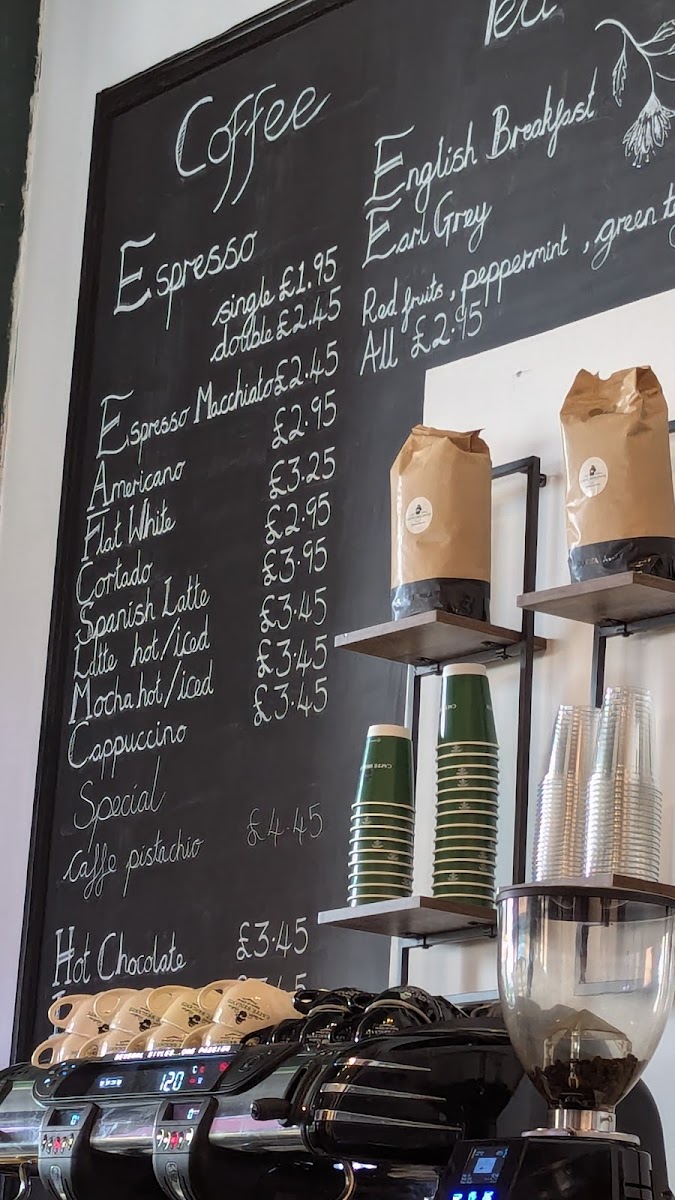 Coffee
Espresso
single £1.95
double £2.45
Espresso Macchiato £2.45
Americano £2.95
Flat White £3.25
Cortado £2.95
Spanish Latte £3.95
Latte hot/iced £3.45
Mocha hot/iced £3.45
Cappuccino £3.45
Special
caffe pistachio £4.45
Hot Chocolate £3.45
Tea
English Breakfast
Earl Grey
Red fruits, peppermint, green
All £2.95
120